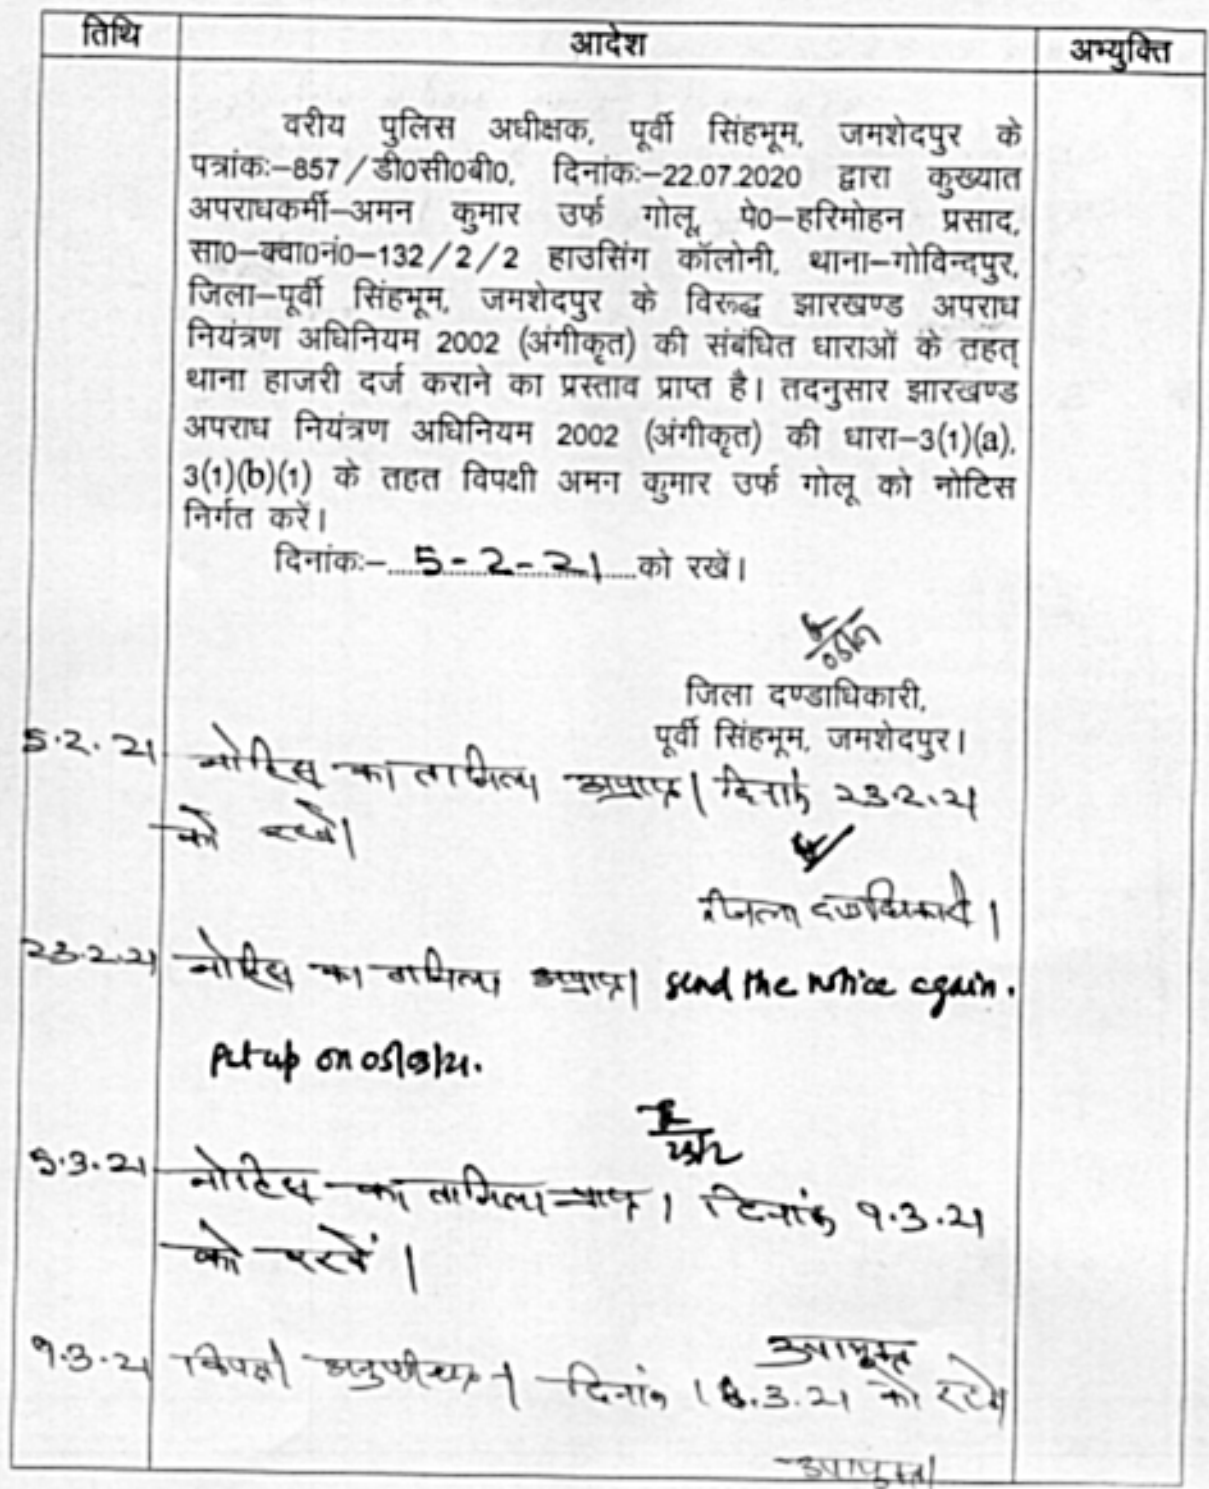 तिथि आदेश अभ्युक्ति
वरीय पुलिस अधीक्षक, पूर्वी सिंहभूम, जमशेदपुर के
पत्रांकः–857/डी0सी0बी0, दिनांकः–22.07.2020 द्वारा कुख्यात
अपराधकर्मी–अमन कुमार उर्फ गोलू, पे0–हरिमोहन प्रसाद,
सा0–क्वा0नं0–132/2/2 हाउसिंग कॉलोनी, थाना–गोविन्दपुर,
जिला–पूर्वी सिंहभूम, जमशेदपुर के विरूद्ध झारखण्ड अपराध
नियंत्रण अधिनियम 2002 (अंगीकृत) की संबंधित धाराओं के तहत्
थाना हाजरी दर्ज कराने का प्रस्ताव प्राप्त है। तदनुसार झारखण्ड
अपराध नियंत्रण अधिनियम 2002 (अंगीकृत) की धारा–3(1)(a),
3(1)(b)(1) के तहत विपक्षी अमन कुमार उर्फ गोलू को नोटिस
निर्गत करें।
दिनांकः–....5-2-21....को रखें।
जिला दण्डाधिकारी,
पूर्वी सिंहभूम, जमशेदपुर।
5.2.21 नोटिस का तामिला अप्राप्त। दिनांक 23.2.21
को रखें।
जिला दण्डाधिकारी।
23.2.21 नोटिस का तामिला अप्राप्त। send the notice again.
Put up on 05/03/21.
23/2
5.3.21 नोटिस का तामिला प्राप्त। दिनांक 9.3.21
को रखें।
उपायुक्त
9.3.21 विपक्षी अनुपस्थित। दिनांक .3.21 को रखें।
उपायुक्त।